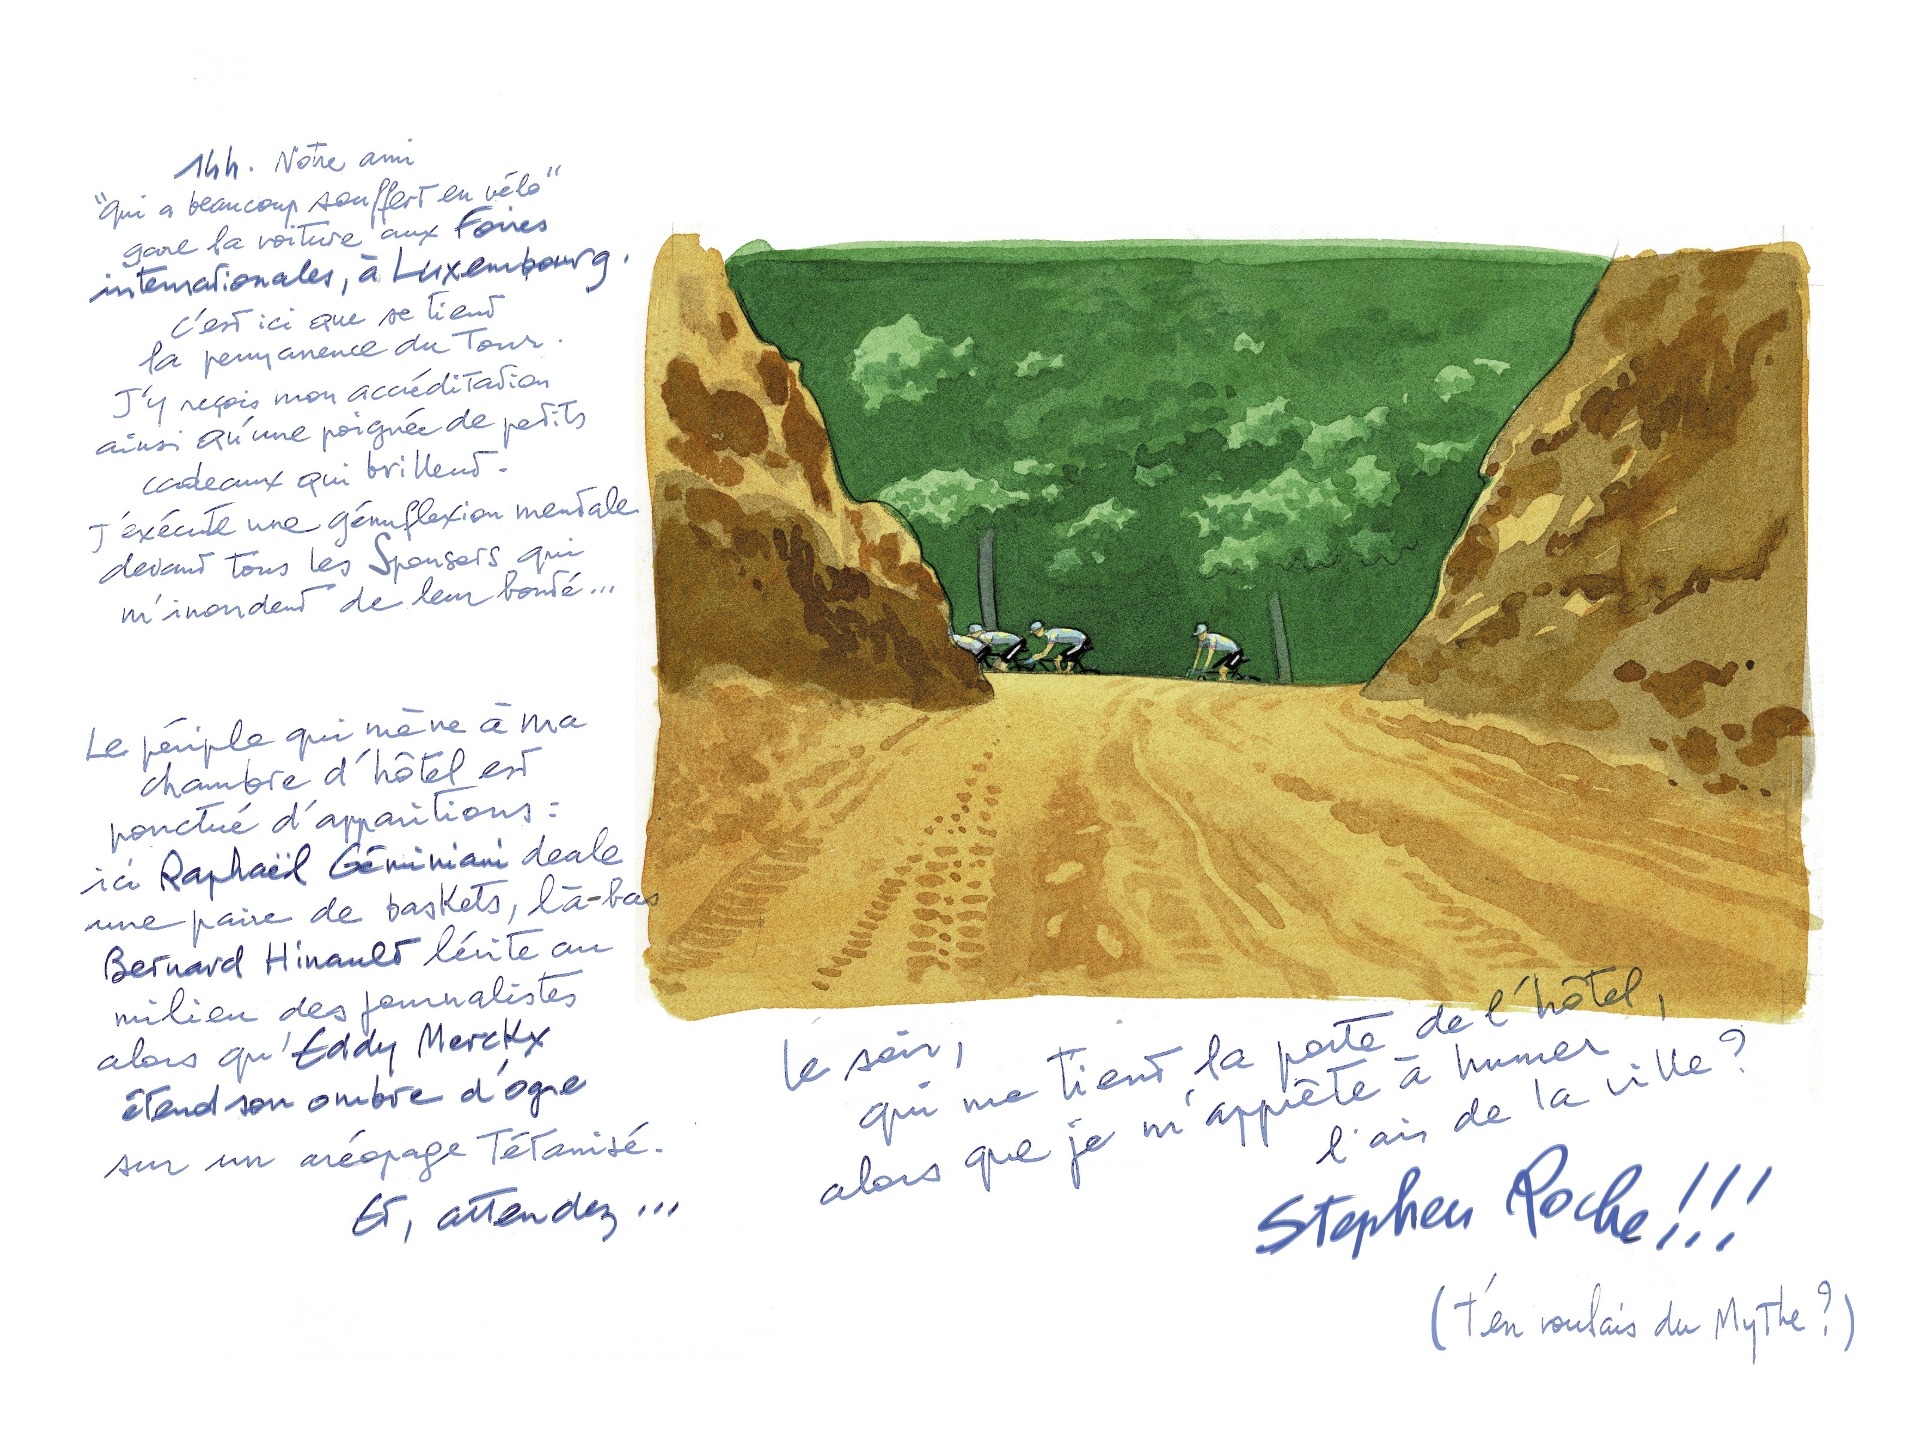 14h. Notre ami
"qui a beaucoup souffert en vélo"
gare la voiture aux Foires
internationales, à Luxembourg.
C'est ici que se tient
la permanence du Tour.
J'y reçois mon accréditation
ainsi qu'une poignée de petits
cadeaux qui brillent.
J'exécute une génuflexion mentale
devant tous les Sponsors qui
m'inondent de leur bonté...
Le périple qui mène à ma
chambre d'hôtel est
ponctué d'apparitions :
ici Raphaël Géminiani deale
une paire de baskets, là-bas
Bernard Hinault lévite au
milieu des journalistes
alors qu'Eddy Merckx
étend son ombre d'ogre
sur un aréopage tétanisé.
Et, attendez...
Le soir,
qui me tient la porte de l'hôtel,
alors que je m'apprête à humer
l'air de la ville ?
Stephen Roche!!!
(t'en voulais du Mythe ?)